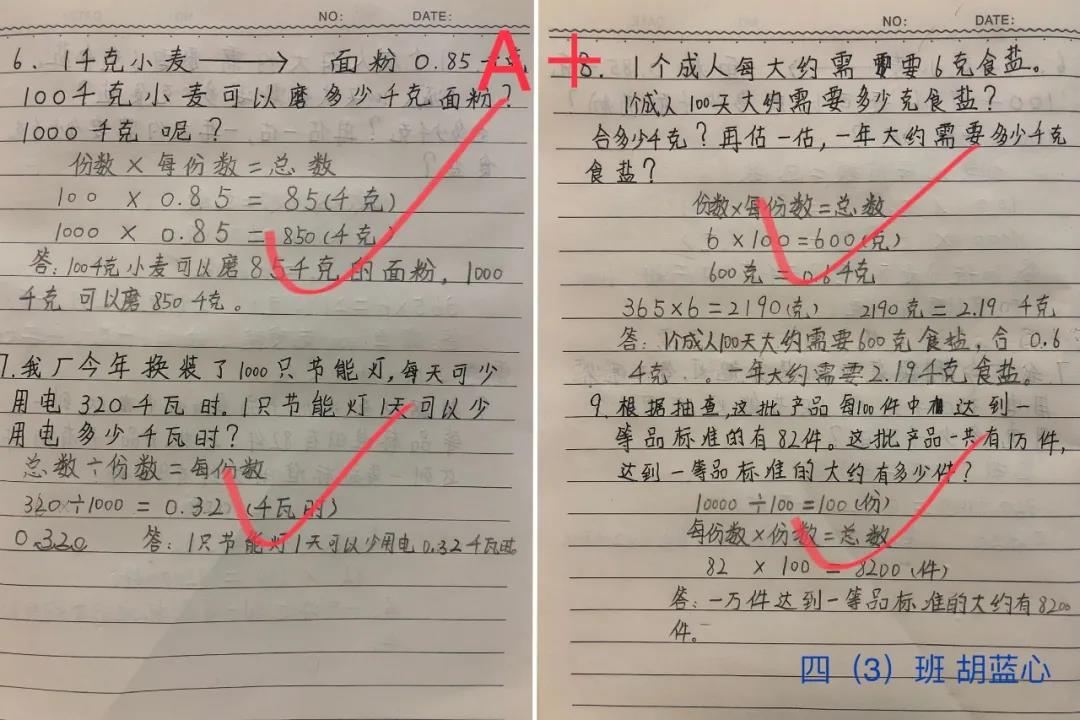 NO: DATE:
A+
6. 1千克小麦 → 面粉 0.85千克
100千克小麦可以磨多少千克面粉?
1000千克呢?
份数×每份数=总数
100 × 0.85 = 85(千克)
1000 × 0.85 = 850(千克)
答:100千克小麦可以磨85千克的面粉,1000
千克可以磨850千克。
7.我厂今年换装了1000只节能灯,每天可少
用电320千瓦时。1只节能灯1天可以少
用电多少千瓦时?
总数÷份数=每份数
320÷1000=0.32(千瓦时)
0.320 答:1只节能灯1天可以少用电0.32千瓦时。
NO: DATE:
8. 1个成人每大约需要6克食盐。
1个成人100天大约需要多少克食盐?
合多少千克?再估一估,一年大约需要多少千克
食盐?
份数×每份数=总数
6×100=600(克)
600克=0.6千克
365×6=2190(克) 2190克=2.19千克
答:1个成人100天大约需要600克食盐,合0.6
千克。一年大约需要2.19千克食盐。
9.根据抽查,这批产品每100件中达到一
等品标准的有82件。这批产品一共有1万件,
达到一等品标准的大约有多少件?
10000÷100=100(份)
每份数×份数=总数
82 × 100 = 8200(件)
答:一万件达到一等品标准的大约有8200
件。
四(3)班 胡蓝心